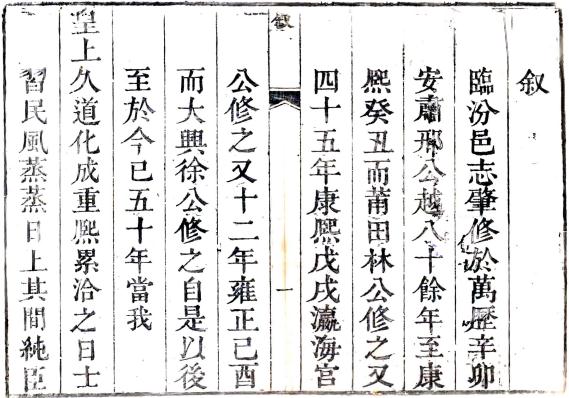 叙
臨汾邑志肇修於萬歷辛卯
安肅邢公越八十餘年至康
熙癸丑而莆田林公修之又
四十五年康熙戊戌瀛海宫
叙
一
公修之又十二年雍正己酉
而大興徐公修之自是以後
至於今已五十年當我
皇上久道化成重熙累洽之日士
習民風蒸蒸日上其間純臣